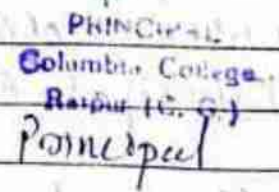 PRINCIPAL
Columbia College
Raipur (C. G.)
Principal